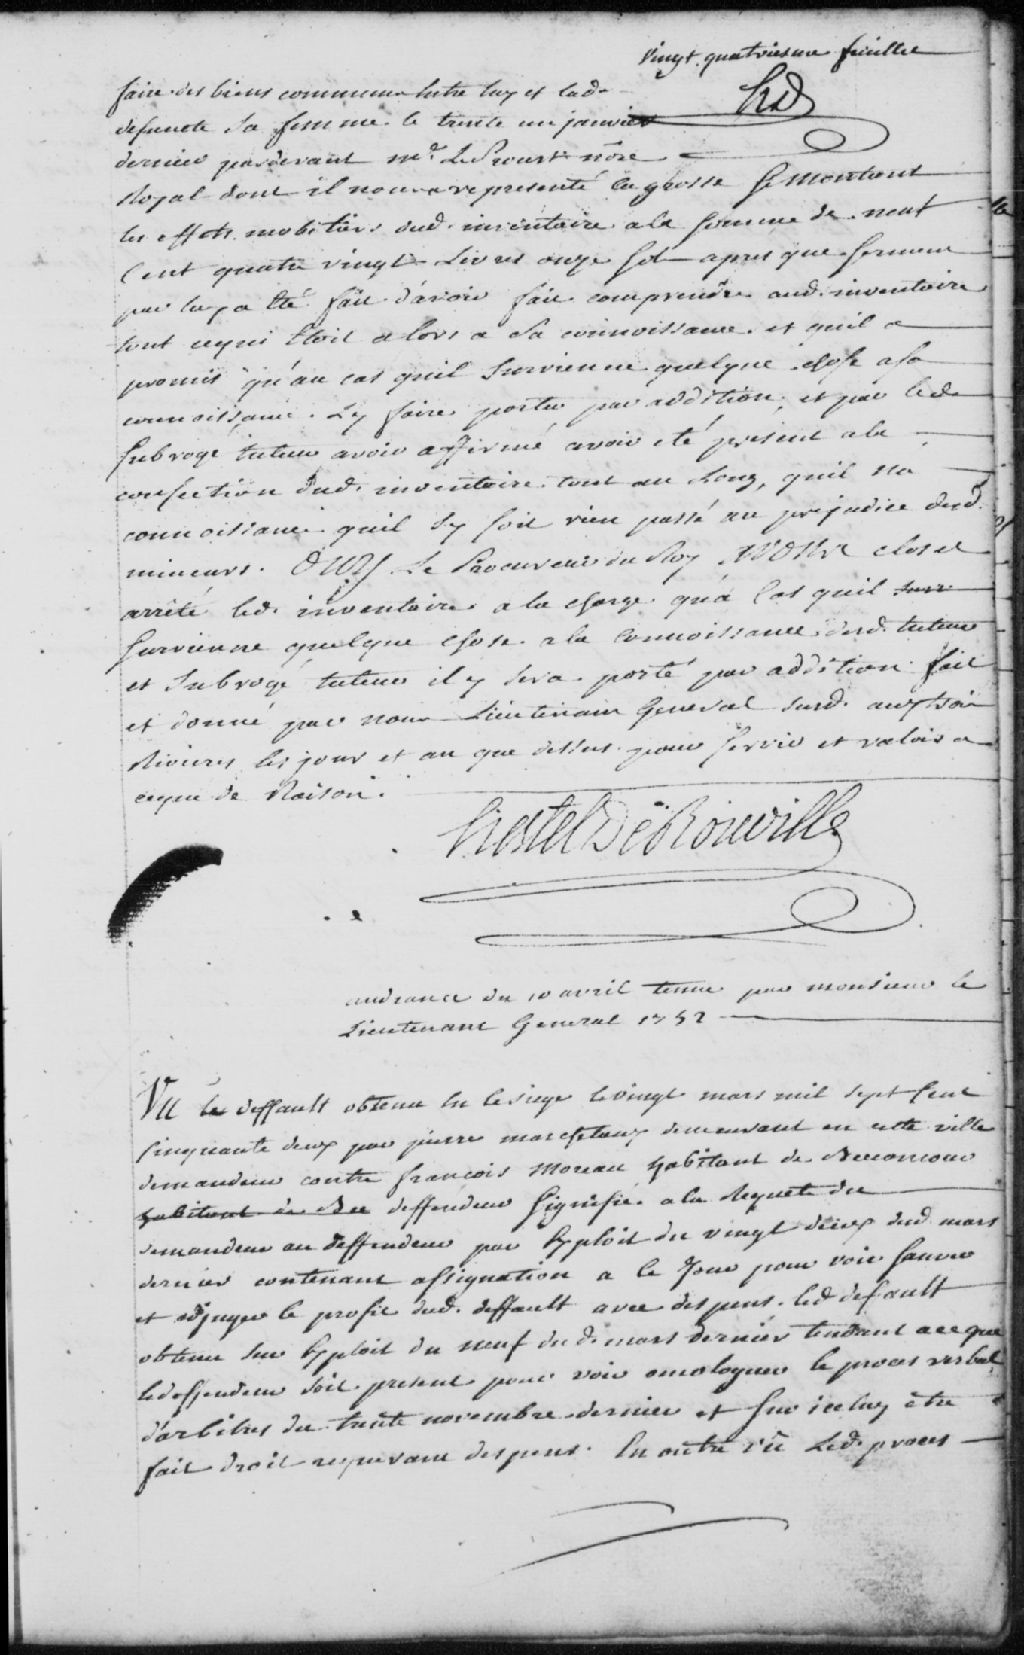 Vingt quatriesme feuillet
hsd
faire des biens communs entre luy et lade
defuncte sa femme le trente un janvier
dernier pardevant me. Le Proust nore
Royal dont il nous a representé la grosse se montant
les effets mobiliers dud. inventaire a la somme de neuf
Cent quatre vingt Livres onze sol apres que serment
par luy a été fait d'avoir fait comprendre aud. inventaire
tout ce qui Etoit alors a sa connoissance et quil a
promis qu'au cas quil survienne quelque chose a sa
connoissance Ly faire porter par addition, et par led.
subrogé tuteur avoir affirmé avoir eté présent a la
confection dud. inventaire tout au Long, quil na
connoissance quil sy soit rien passé au préjudice desd.
mineurs. OUY Le Procureur du Roy NOUS clos et
arrêté led. inventaire a la charge qu'a Cas quil surv
survienne quelque chose a la Connoissance desd. tuteur
et subrogé tuteur il y sera porté par addition fait
et donné par nous Lieutenant General susd. aux trois
Rivieres les jour et an que dessus pour servir et valoir a
ce que de Raison.
hertel De Rouville
audiance du 10 avril tenue par monsieur le
Lieutenant General 1752
VU le deffault obtenu en le siege le vingt mars mil sept Cent
Cinquante deux par pierre marchetaux demeurant en cette ville
demandeur contre françois Moreau habitant de Becancour
habitant de Bec deffendeur signifié a la Requete du
demandeur au deffendeur par Exploit du vingt deux dud. mars
dernier contenant assignation a ce Jour pour voir sauver
et adjuger le profit dud. deffault avec despens. led. default
obtenu sur Exploit du neuf dud. mars dernier tendant a ce que
le deffendeur soit present pour voir omologuer le proces verbal
d'arbitres du trente novembre dernier et sur iceluy être
fait droit requerant despens. En outre vû Led. proces